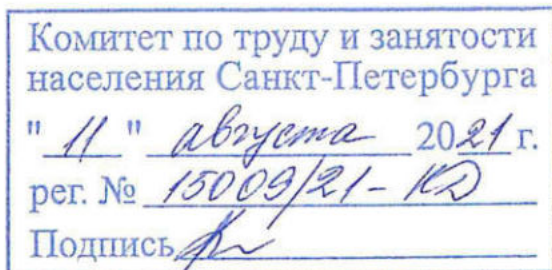 Комитет по труду и занятости
населения Санкт-Петербурга
" 11 " августа 2021 г.
рег. № 15009/21-КД
Подпись